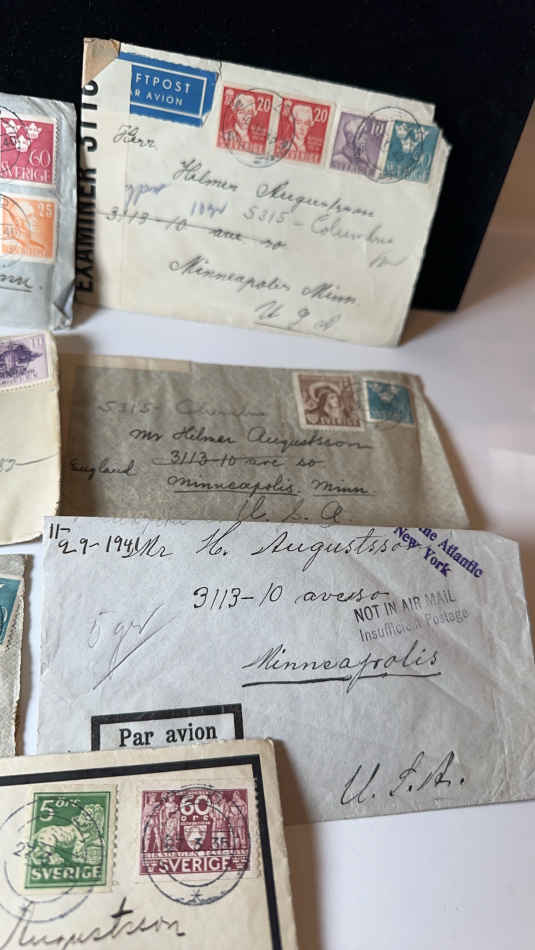 60
SVERIGE
25
nn.
EXAMINER 5775
FTPOST
AR AVION
20
20
10
Herr
Helmer Augustsson
5315 - Columbus
3113-10 ave. so
Minneapolis Minn.
U S A
5315 -
Mr Helmer Augustsson
3113-10 ave so
England
Minneapolis. Minn.
U. S. A.
SVERIGE
11-
29-1941
Mr H. Augustsso
he Atlantic
New York
3113-10 ave so
NOT IN AIR MAIL
Insufficient Postage
Minneapolis
Par avion
U. S. A.
5 öre
SVERIGE
60
öre
SVERIGE
Augustsson